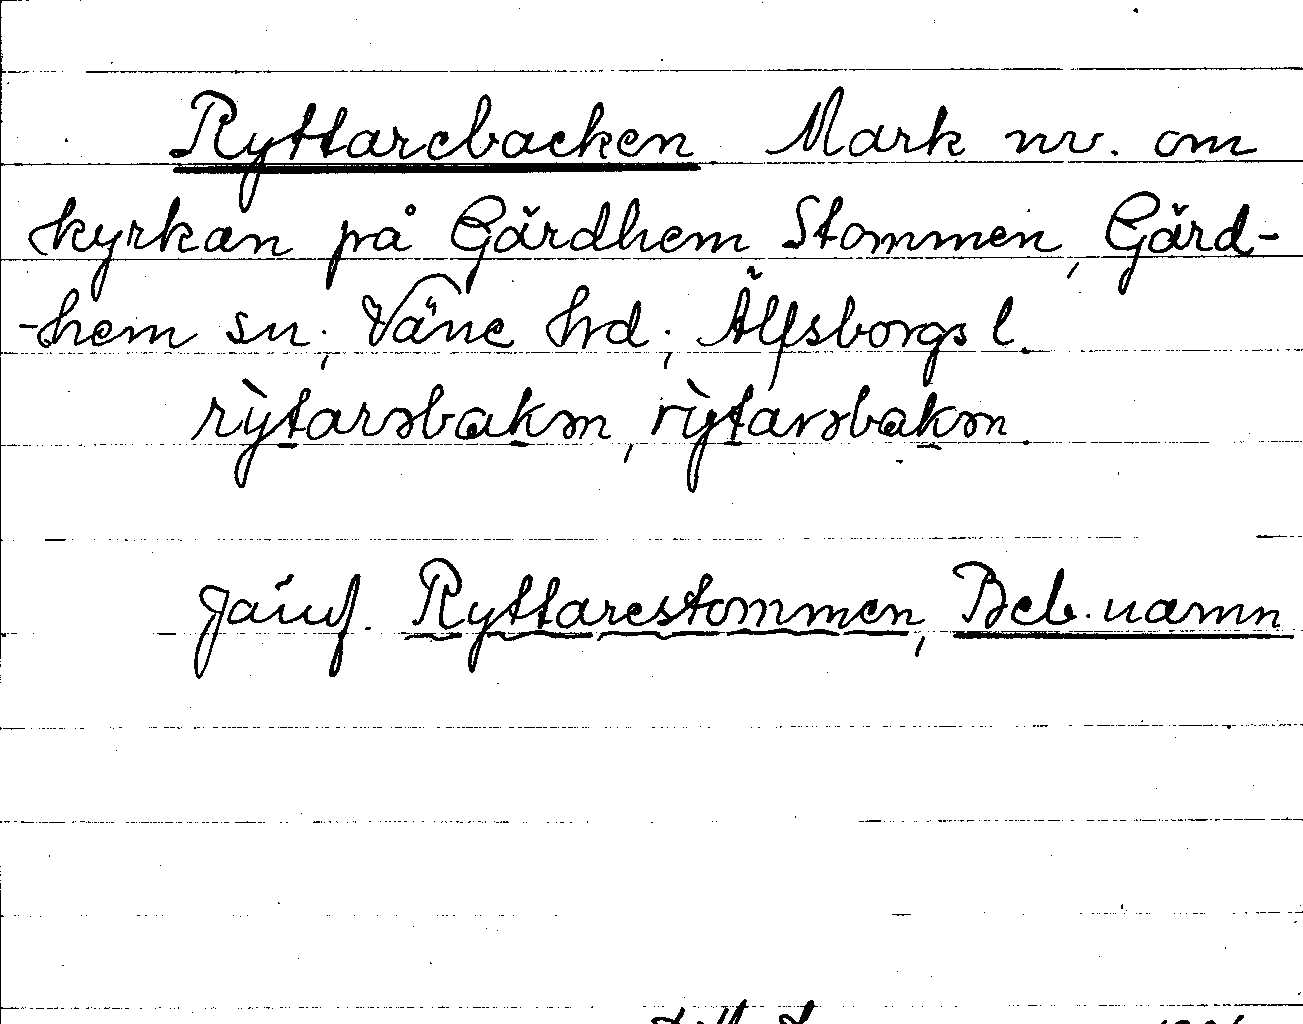 Ryttarebacken Mark nv. om
kyrkan på Gärdhem Stommen, Gärd-
-hem sn; Väne hrd; Älfsborgs l.
rỳtarəbakən, rỳtarəbakən.
Jämf. Ryttarestommen, Beb. namn